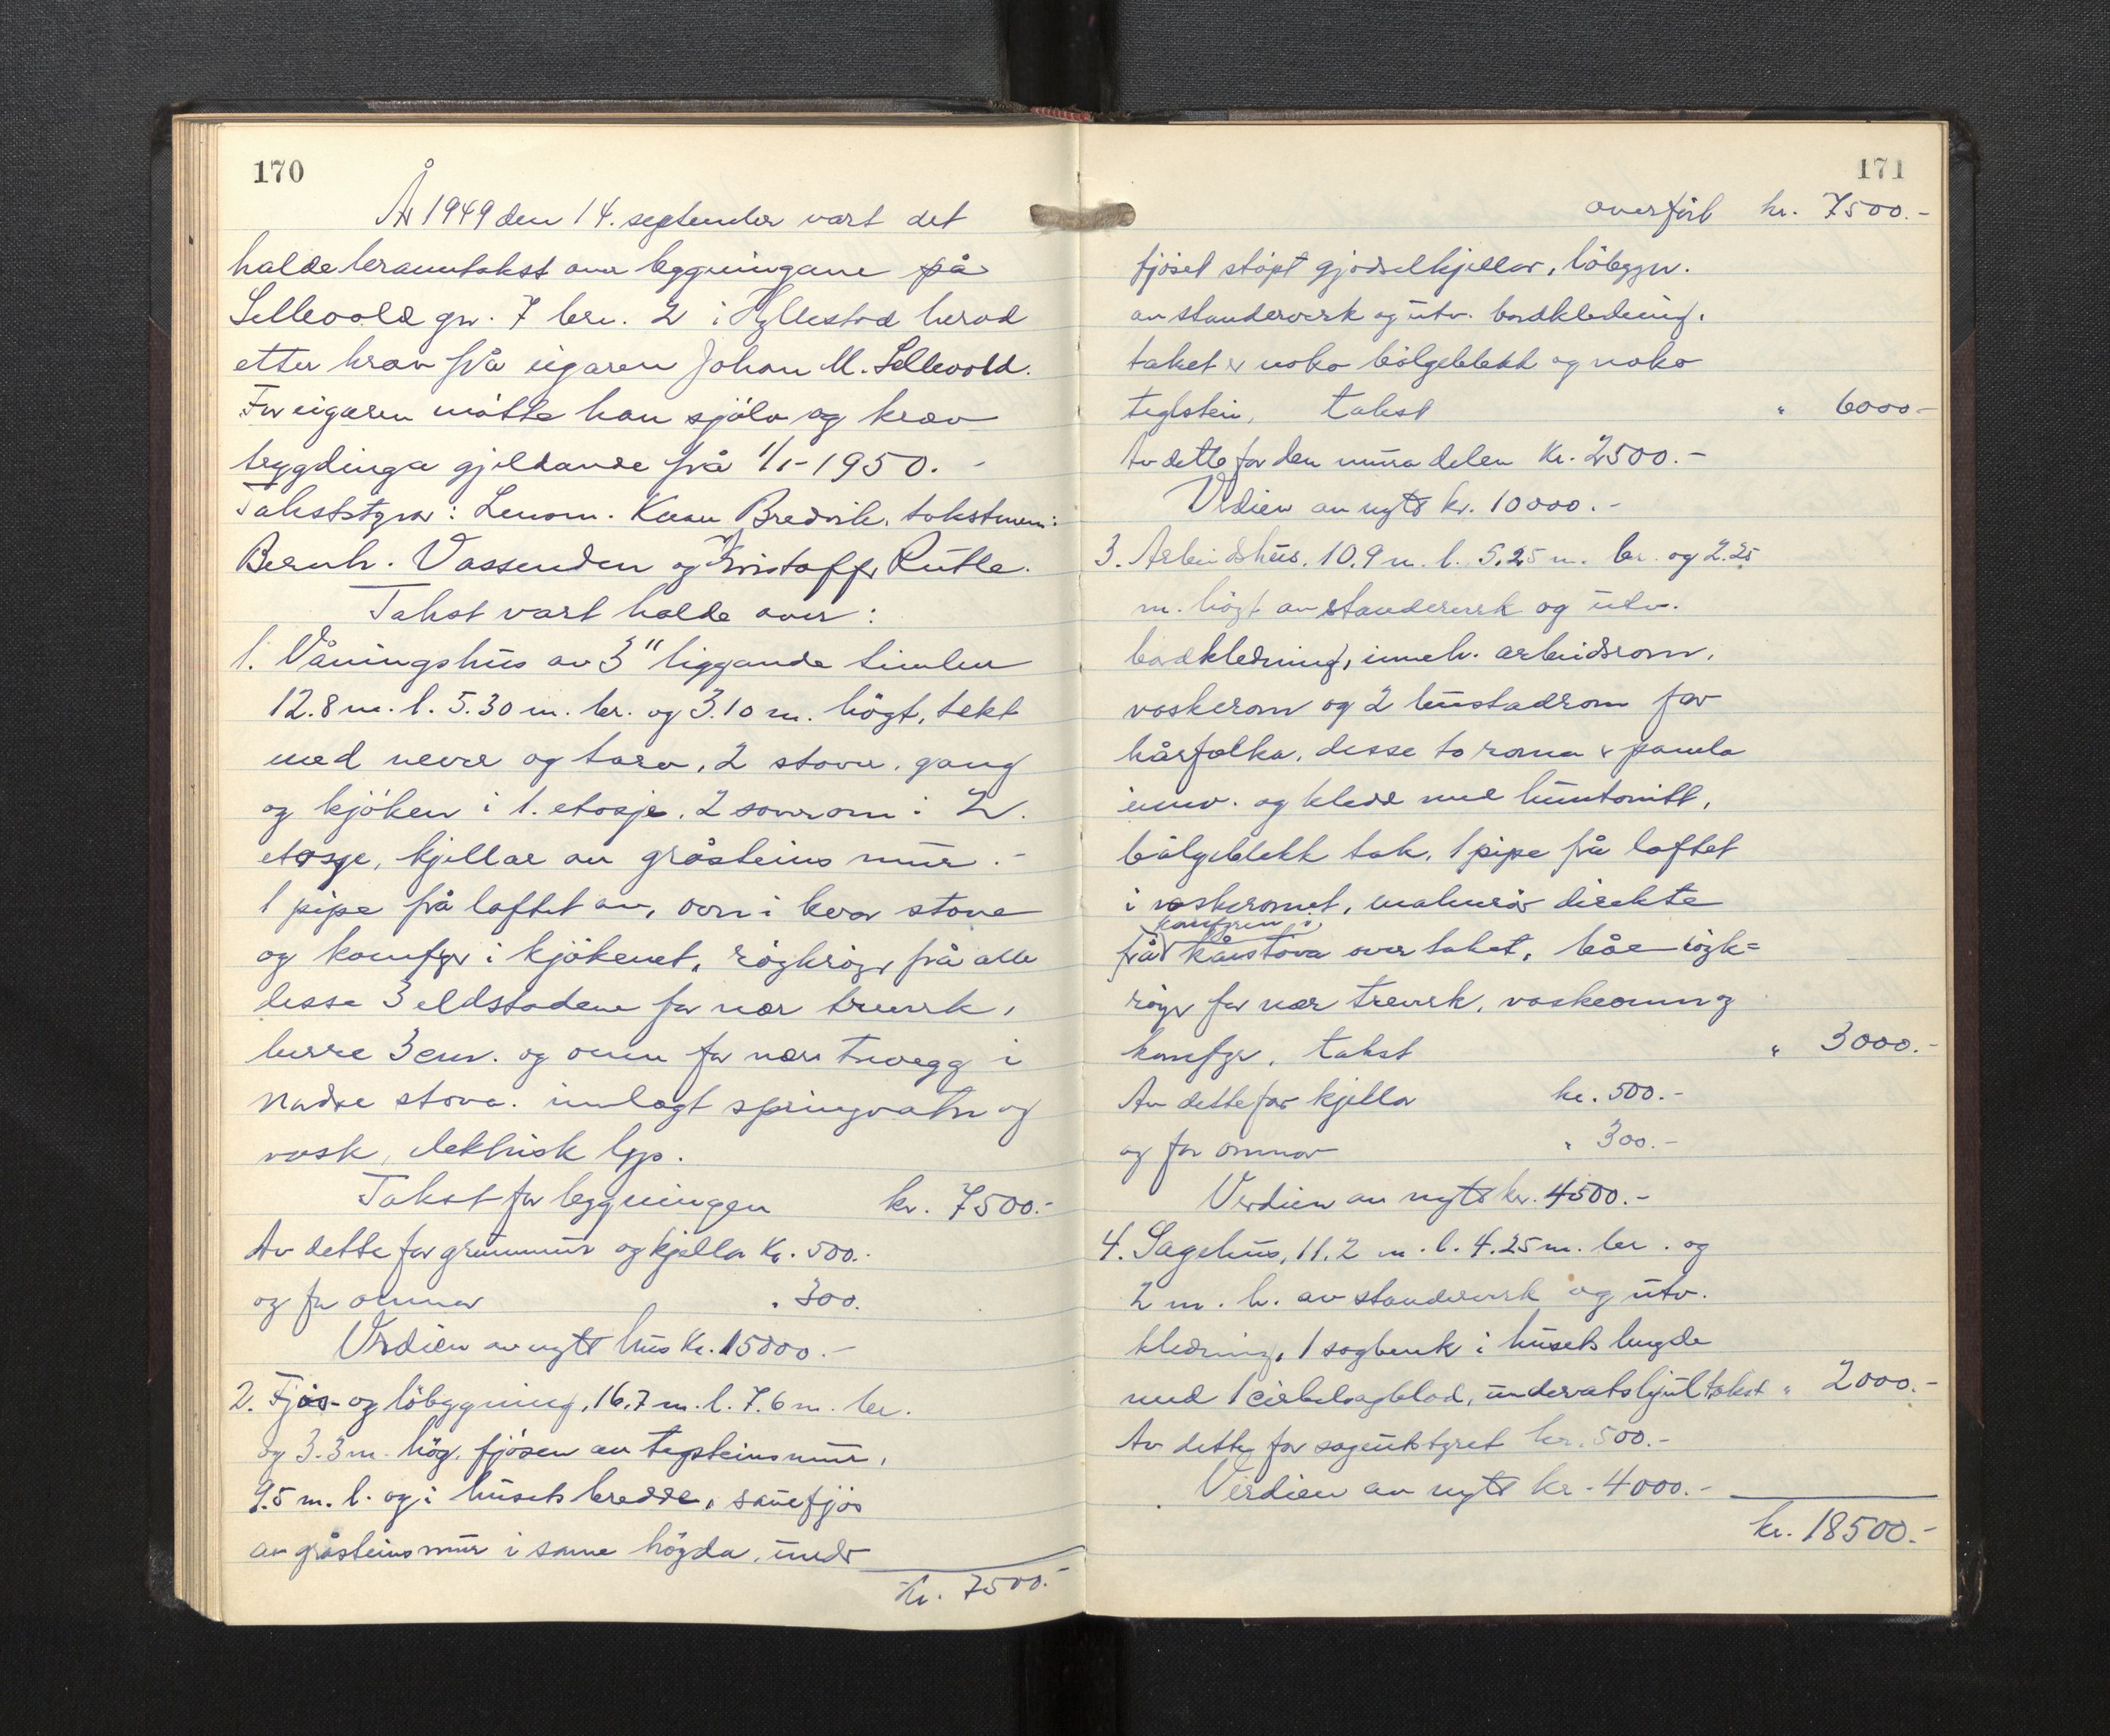 170
År 1949 den 14. september vart det
halde branntakst over bygningane på
Sellevold gn. 7 brn. 2 i Hyllestad herad
etter krav frå eigaren Johan M. Sellevold.
For eigaren møtte han sjølv og krav
trygdinga gjeldande frå 1/1-1950. -
Takststyrar: Lensm. Knau Bredvik, takstmenn:
Bernh. Vassenden og Kristoffer Rutle.
Takst vart halde over:
1. Våningshus av 3" liggande timber
12.8 m. l. 5.30 m. br. og 3.10 m. högt, tekt
med never og torv, 2 stover, gang
og kjöken i 1. etasje, 2 soverom i 2.
etasje, kjellar av gråsteins mur. -
1 pipe frå loftet av, ovn i kvar stove
og komfyr i kjökenet, röykröyr frå alle
desse 3 eldstadene for nær treverk,
berre 3 cm. og omn for nær trevegg i
nedre stova. innlagt springvatn og
vask, elektrisk lys.
Takst for bygningen kr. 7500.-
Av dette for grunnmur og kjellar Kr. 500.-
og for omnar " 300.
Verdien av nytt hus Kr. 15000.-
2. Fjös- og löbygning, 16,7 m. l. 7.6 m. br.
og 3.3 m. hög, fjösen av teglsteinsmur,
9.5 m. l. og i husets bredde, sauefjös
av gråsteinsmur i same högda, under
Kr. 7500.-
171
overfört kr. 7500.-
fjöset stöpt gjödselkjellar, löbygn.
av standerverk og utv. bordkledning,
taket er noko bölgeblekk og noko
teglstein, takst " 6000-
Av dette for den mura delen Kr. 2500.-
Verdien av nytt kr. 10000.-
3. Arbeidshus, 10.9 m. l. 5.25 m. br. og 2.25
m. högt av standerverk og utv.
bordkledning, inneh. arbeidsrom,
vaskerom og 2 bustadrom for
kårfolka, desse to roma er panela
innv. og kledd med huntonitt,
bölgeblekk tak, 1 pipe frå loftet
i vaskeromet, malmrör direkte
komfyren i
frå kårstova over taket, båe röyk=
röyr for nær treverk, vaskeomn og
komfyr, takst " 3000.-
Av dette for kjellar kr. 500.-
og for omnar " 300.-
Verdien av nytt kr. 4500.-
4. Sagehus, 11.2 m. l. 4.25 m. br. og
2 m. h. av standerverk og utv.
kledning, 1 sagbenk i husets lengde
med 1 cirkelsagblad, undervatshjul takst " 2000.-
Av dette for sagutstyret kr. 500.-
Verdien av nytt kr. 4000.-
kr. 18500.-